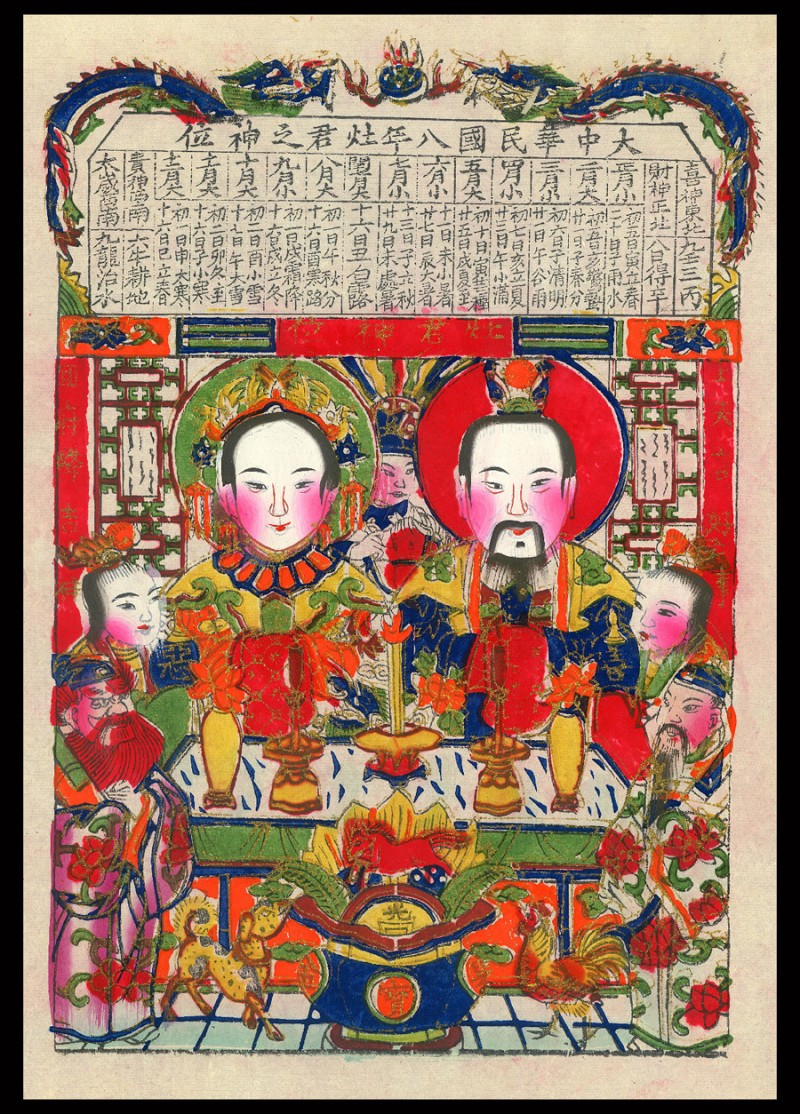 大中華民國八年灶君之神位
喜神東北 九至三丙
財神正北 八日得辛
正月小 初五日寅立春 二十日子雨水
二月大 初五日亥驚蟄 廿一日子春分
三月小 初六日子清明 廿一日午谷雨
四月小 初七日亥立夏 廿三日午小滿
五月大 初十日寅芒種 廿五日戌夏至
六月小 十一日未小暑 廿七日辰大暑
七月小 十三日子立秋 廿九日未處暑
閏月大 十六日丑白露
八月大 初一日午秋分 十六日酉寒路
九月小 初一日戌霜降 十六日戌立冬
十月大 初二日酉小雪 十七日午大雪
十一月大 初二日卯冬至 十六日子小寒
十二月大 初一日申大寒 十六日巳立春
貴神西南 六牛耕地
太歲西南 九龍治水
灶君神位